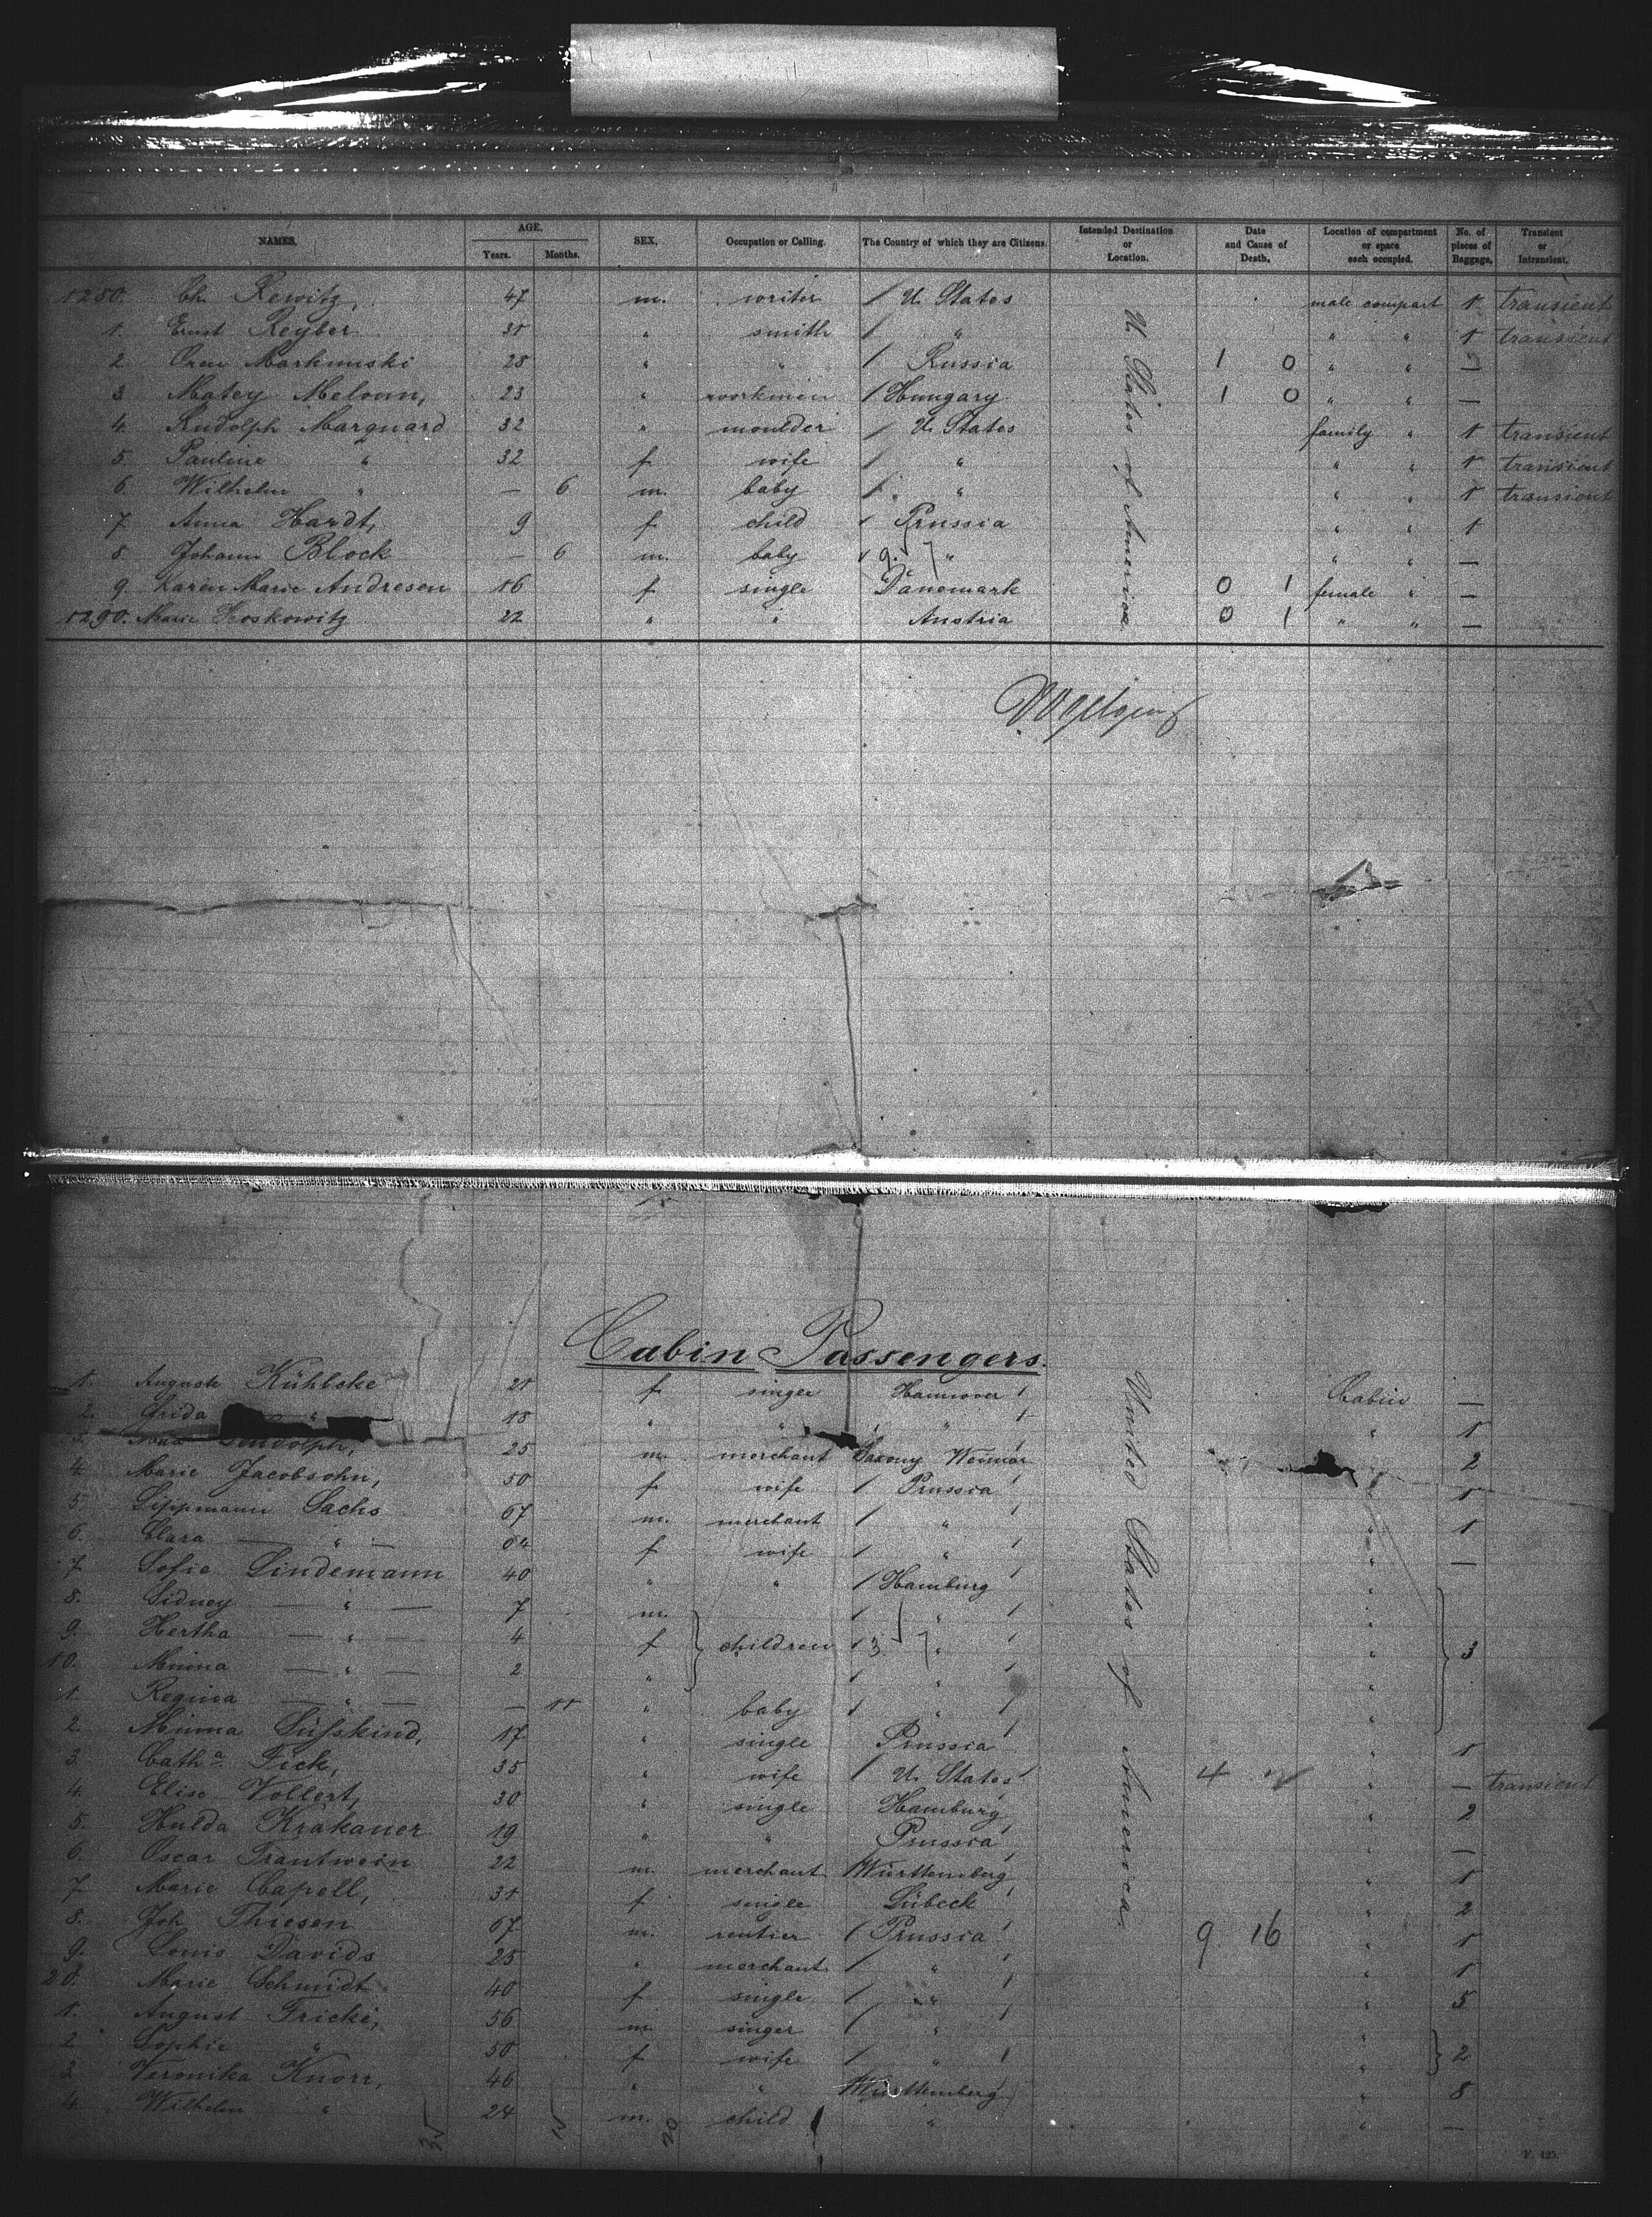 NAMES. AGE. Years. Months. SEX. Occupation or Calling. The Country of which they are Citizens. Intended Destination or Location. Date and Cause of Death. Location of compartment or space each occupied. No. of pieces of Baggage. Transient or Intransient.
1280. Ch. Rewitz, 47 m. writer / U. States male compart 1 transient
1. Ernst Reyber 31 " smith / " " " 1 transient
2. Markunski 28 " " / Russia 1 0 " " —
3. Matey Meloun, 23 " workmen / Hungary 1 0 " " —
4. Rudolph Marquard 32 " moulder / U. States family " 1 transient
5. Pauline " 32 f. wife / " " " 1 transient
6. Wilhelm " — 6 m. baby / " " " 1 transient
7. Anna Hardt, 9 f. child / Prussia " " 1
8. Johann Block — 6 m. baby / 9. " " " —
9. Karen Marie Andresen 16 f. single Dänemark 0 1 female " —
1290. Marie Koskowitz 22 " " Austria 0 1 " " —
U. States of America
Cabin Passengers.
1. Auguste Kühlcke 21 f. single Hannover / Cabin —
2. Frida " 18 " " / " / " 1
3. Rudolph, 25 m. merchant Saxony Weimar 2
4. Marie Jacobsohn, 50 f. wife / Prussia / " 1
5. Lippmann Sachs 67 m. merchant / " / " 1
6. Clara — " — f. wife / " / " —
7. Sofie Lindemann 40 " " / Hamburg / "
8. Sidney — " — 7 m. / " / "
9. Hertha — " — 4 f. children / 3. " / " 3
10. Minna — " — 2 " / " / "
1. Regina — " — — 11 " baby / " / "
2. Minna Süfskind, 17 " single Prussia / " 1
3. Cath.a Fick, 35 " wife / U. States / 4 " — transient
4. Elise Vollert, 30 " single Hamburg / " 2
5. Hulda Krakauer 19 " " Prussia / " —
6. Oscar Trautwein 22 m. merchant / Württemberg / " 1
7. Marie Capell, 31 f. single Lübeck / " 2
8. Joh. Thiesen 67 m. rentier / Prussia / 9 16 " 1
9. Louis Davids 25 " merchant / " / " 1
20. Marie Schmidt 40 f. single / " / " 5
1. August Fricke, 56 m. singer / " / "
2. Sophie " 50 f. wife / " / " 2
3. Veronika Knorr, 46 " " / Württemberg / " 8
4. Wilhelm " 24 m. child / " " —
United States of America.
F. 425.